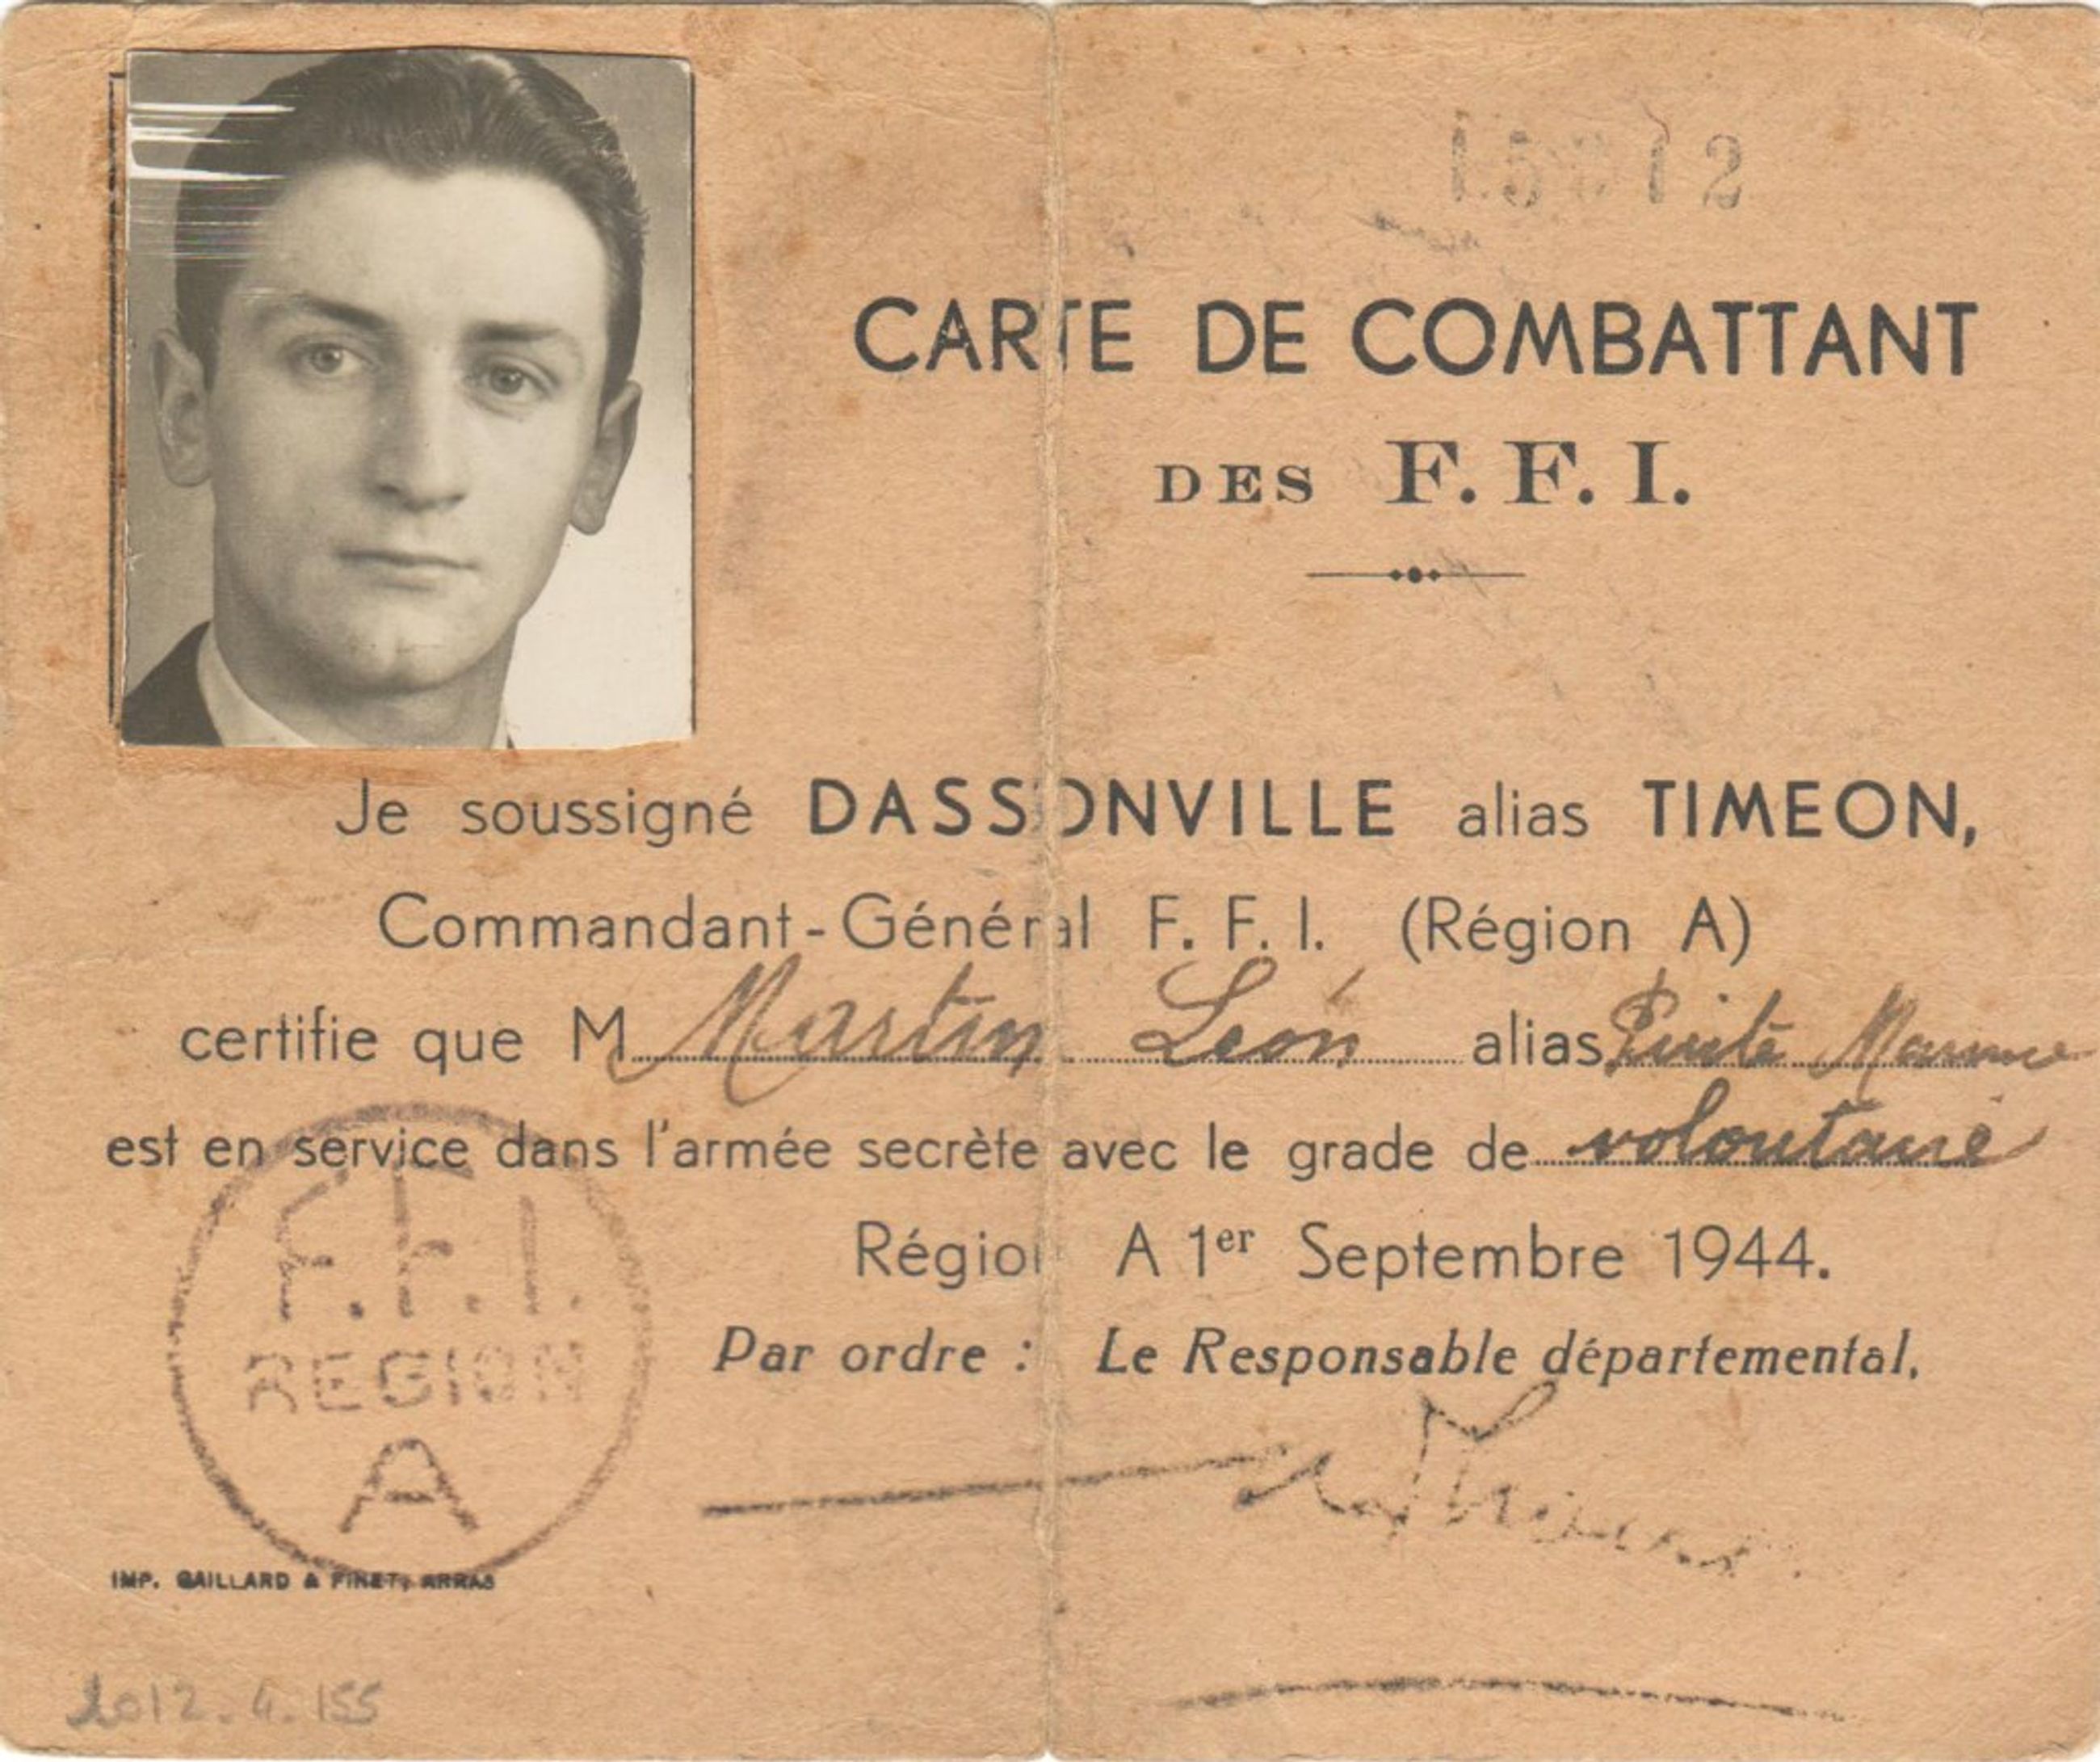 CARTE DE COMBATTANT
DES F. F. I.
Je soussigné DASSONVILLE alias TIMEON,
Commandant-Général F. F. I. (Région A)
certifie que M Martin Léon alias
est en service dans l'armée secrète avec le grade de volontaire
Région A 1er Septembre 1944.
Par ordre : Le Responsable départemental,
F. F. I.
REGION
A
IMP. GAILLARD & FINET, ARRAS
2012.4.155